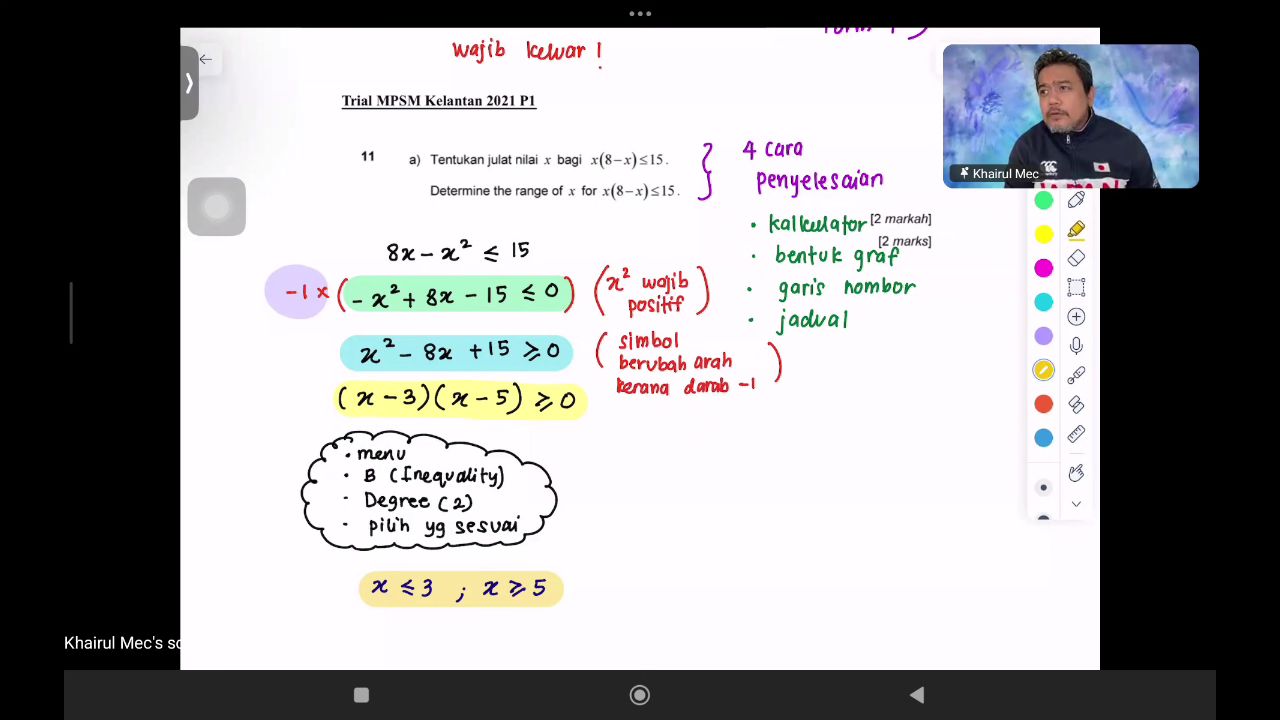 wajib keluar !
Trial MPSM Kelantan 2021 P1
11 a) Tentukan julat nilai x bagi x(8−x) ≤ 15.
Determine the range of x for x(8−x) ≤ 15.
4 cara
penyelesaian
[2 markah]
[2 marks]
• kalkulator
• bentuk graf
• garis nombor
• jadual
8x − x² ≤ 15
−1 × (− x² + 8x − 15 ≤ 0) (x² wajib
positif)
x² − 8x + 15 ≥ 0 (simbol
berubah arah
kerana darab −1)
(x − 3)(x − 5) ≥ 0
• menu
• B (Inequality)
• Degree (2)
• pilih yg sesuai
x ≤ 3 ; x ≥ 5
Khairul Mec
Khairul Mec's sc